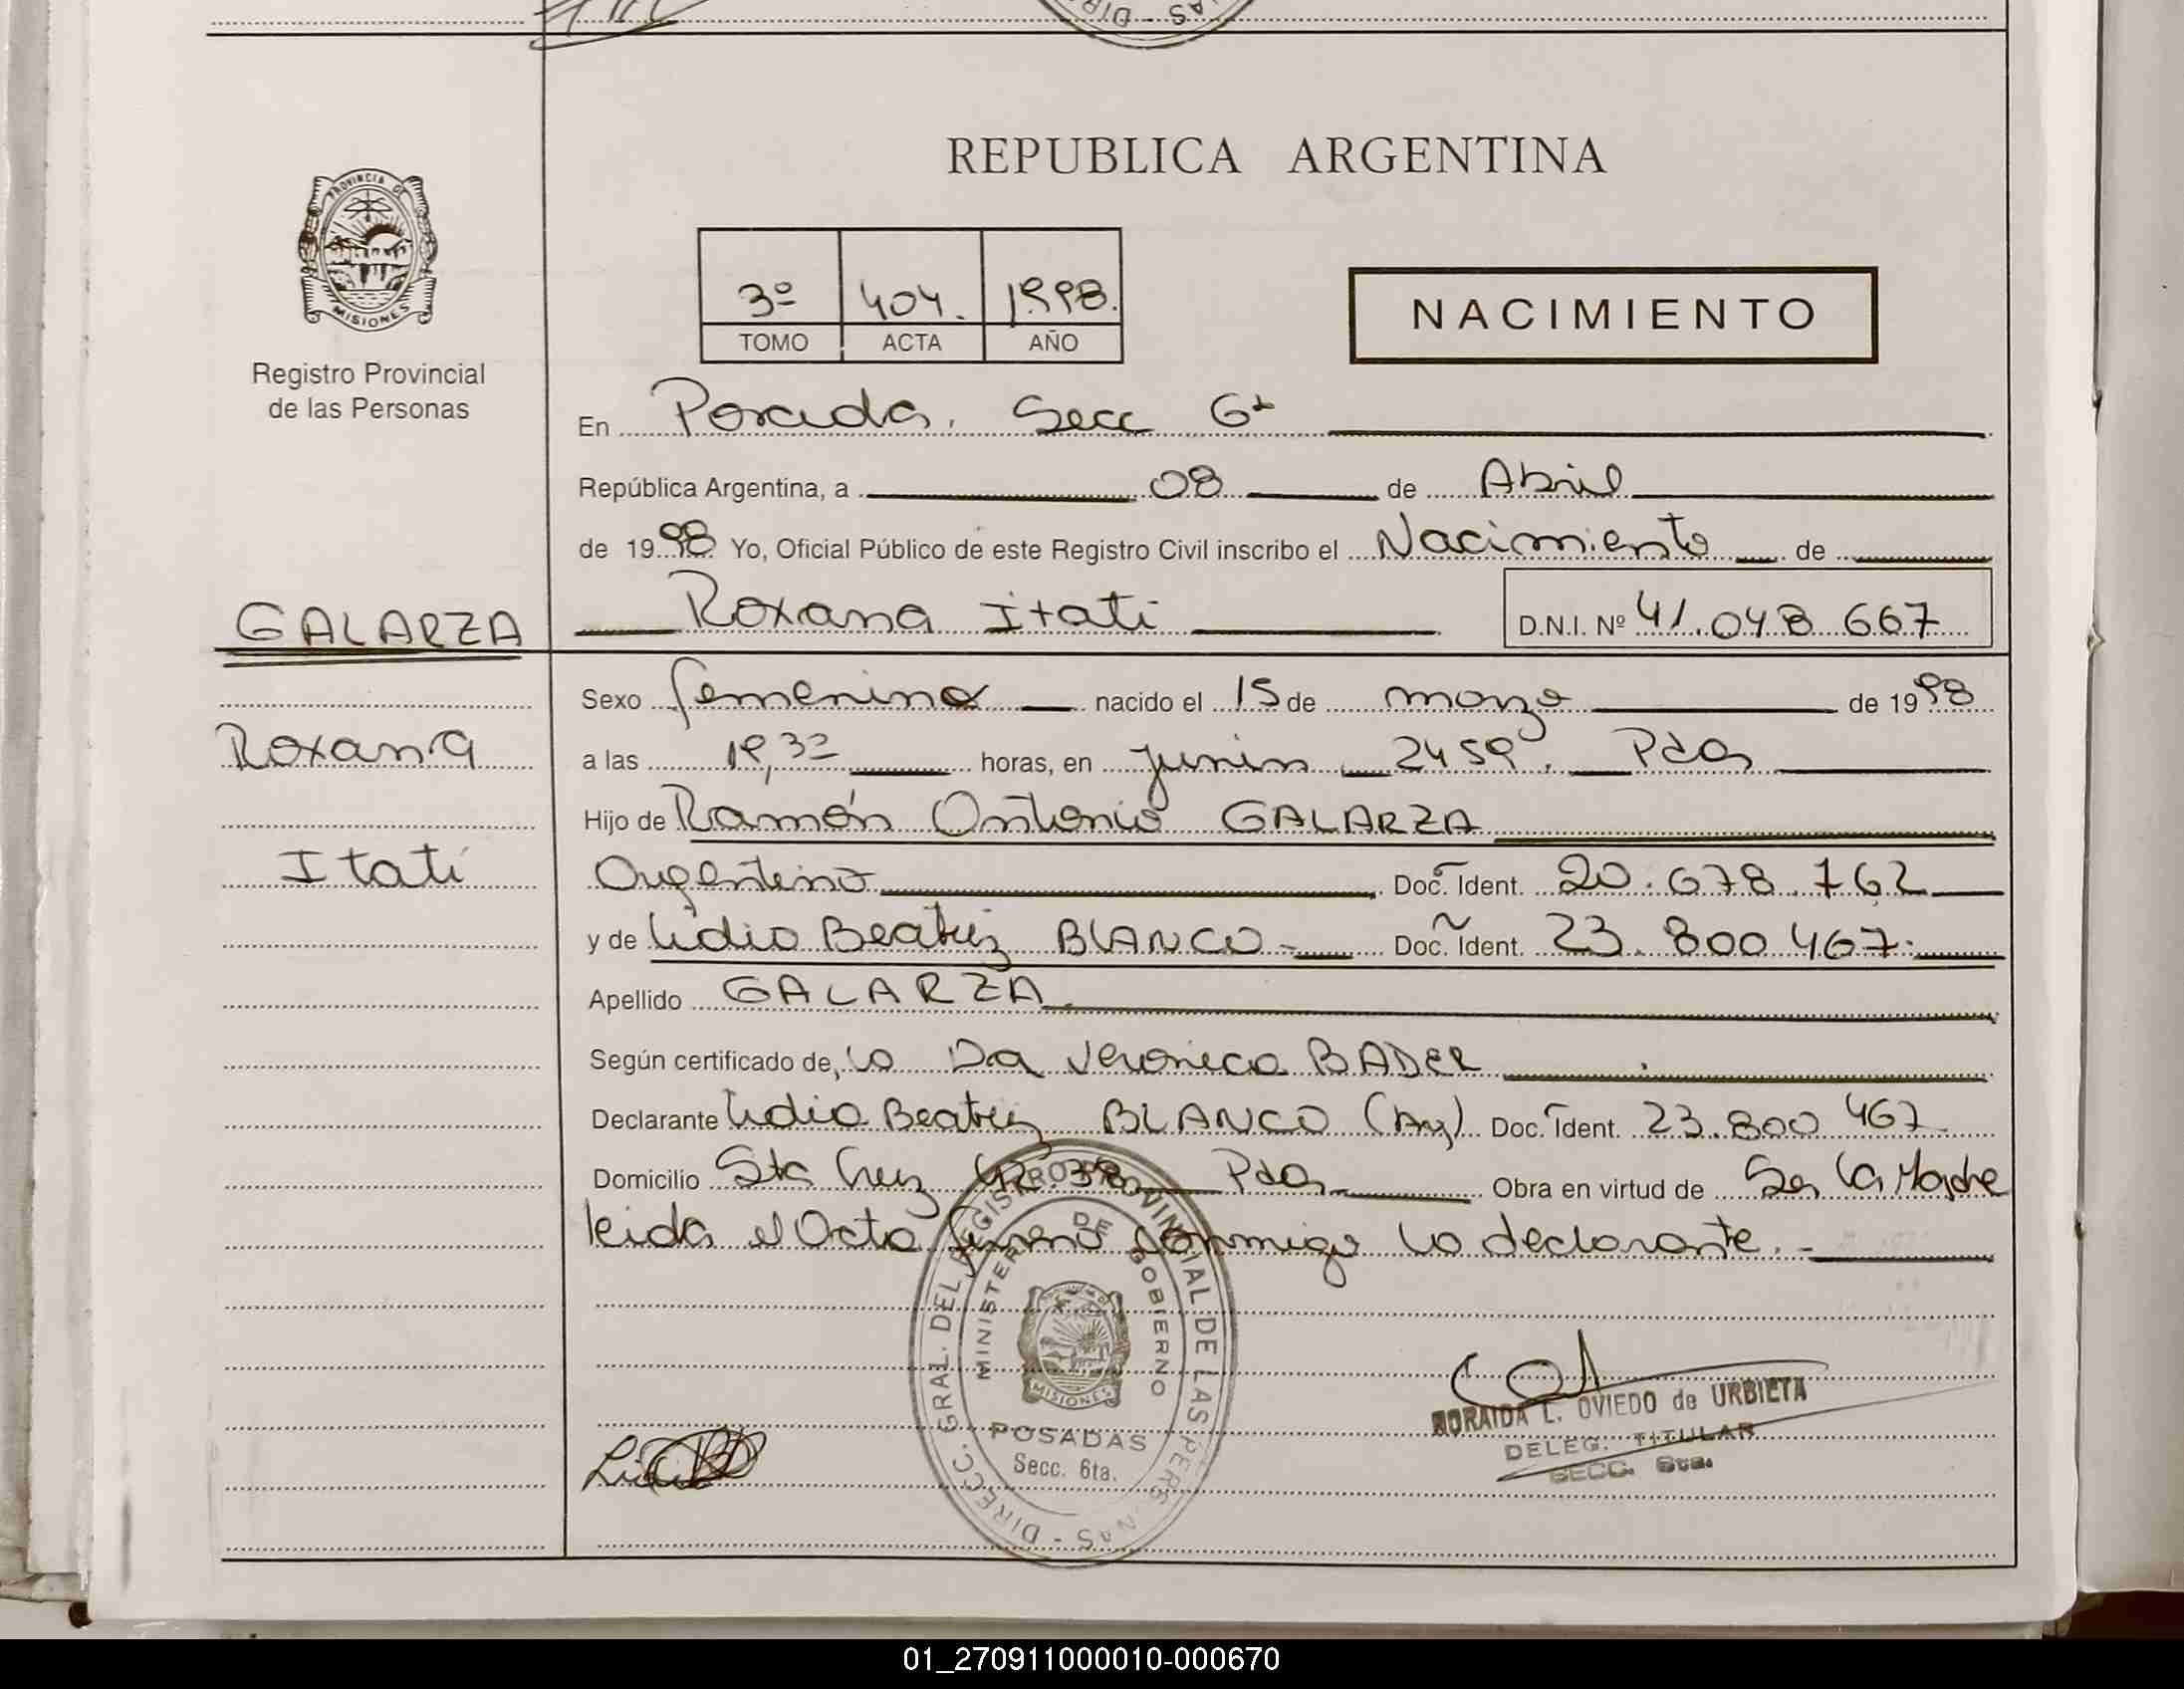 REPUBLICA ARGENTINA
PROVINCIA DE
MISIONES
Registro Provincial
de las Personas
3º 404. 1998.
TOMO ACTA AÑO
NACIMIENTO
En Posadas. Secc 6ª
República Argentina, a 08 de Abril
de 1998 Yo, Oficial Público de este Registro Civil inscribo el Nacimiento de
GALARZA
Roxana Itati
D.N.I. Nº 41.048 667
Sexo femenino nacido el 15 de marzo de 1998
Roxana
a las 19,32 horas, en Junin 2459. Pdas
Hijo de Ramón Antonio GALARZA
Itati
Argentino Doc. Ident. 20.678.762
y de Lidia Beatriz BLANCO Doc. Ident. 23.800 467.
Apellido GALARZA
Según certificado de, la Dra Veronica BADER
Declarante Lidia Beatriz BLANCO (Arg) Doc. Ident. 23.800 467
Domicilio Sta Cruz Pdas Obra en virtud de Ser la Madre
leida el Acta firmando conmigo la declarante.
DIRECC. GRAL. DEL REGISTRO PROVINCIAL DE LAS PERSONAS
MINISTERIO DE GOBIERNO
MISIONES
POSADAS
Secc. 6ta.
NORAIDA L. OVIEDO de URBIETA
DELEG. TITULAR
SECC. 6ta.
01_270911000010-000670